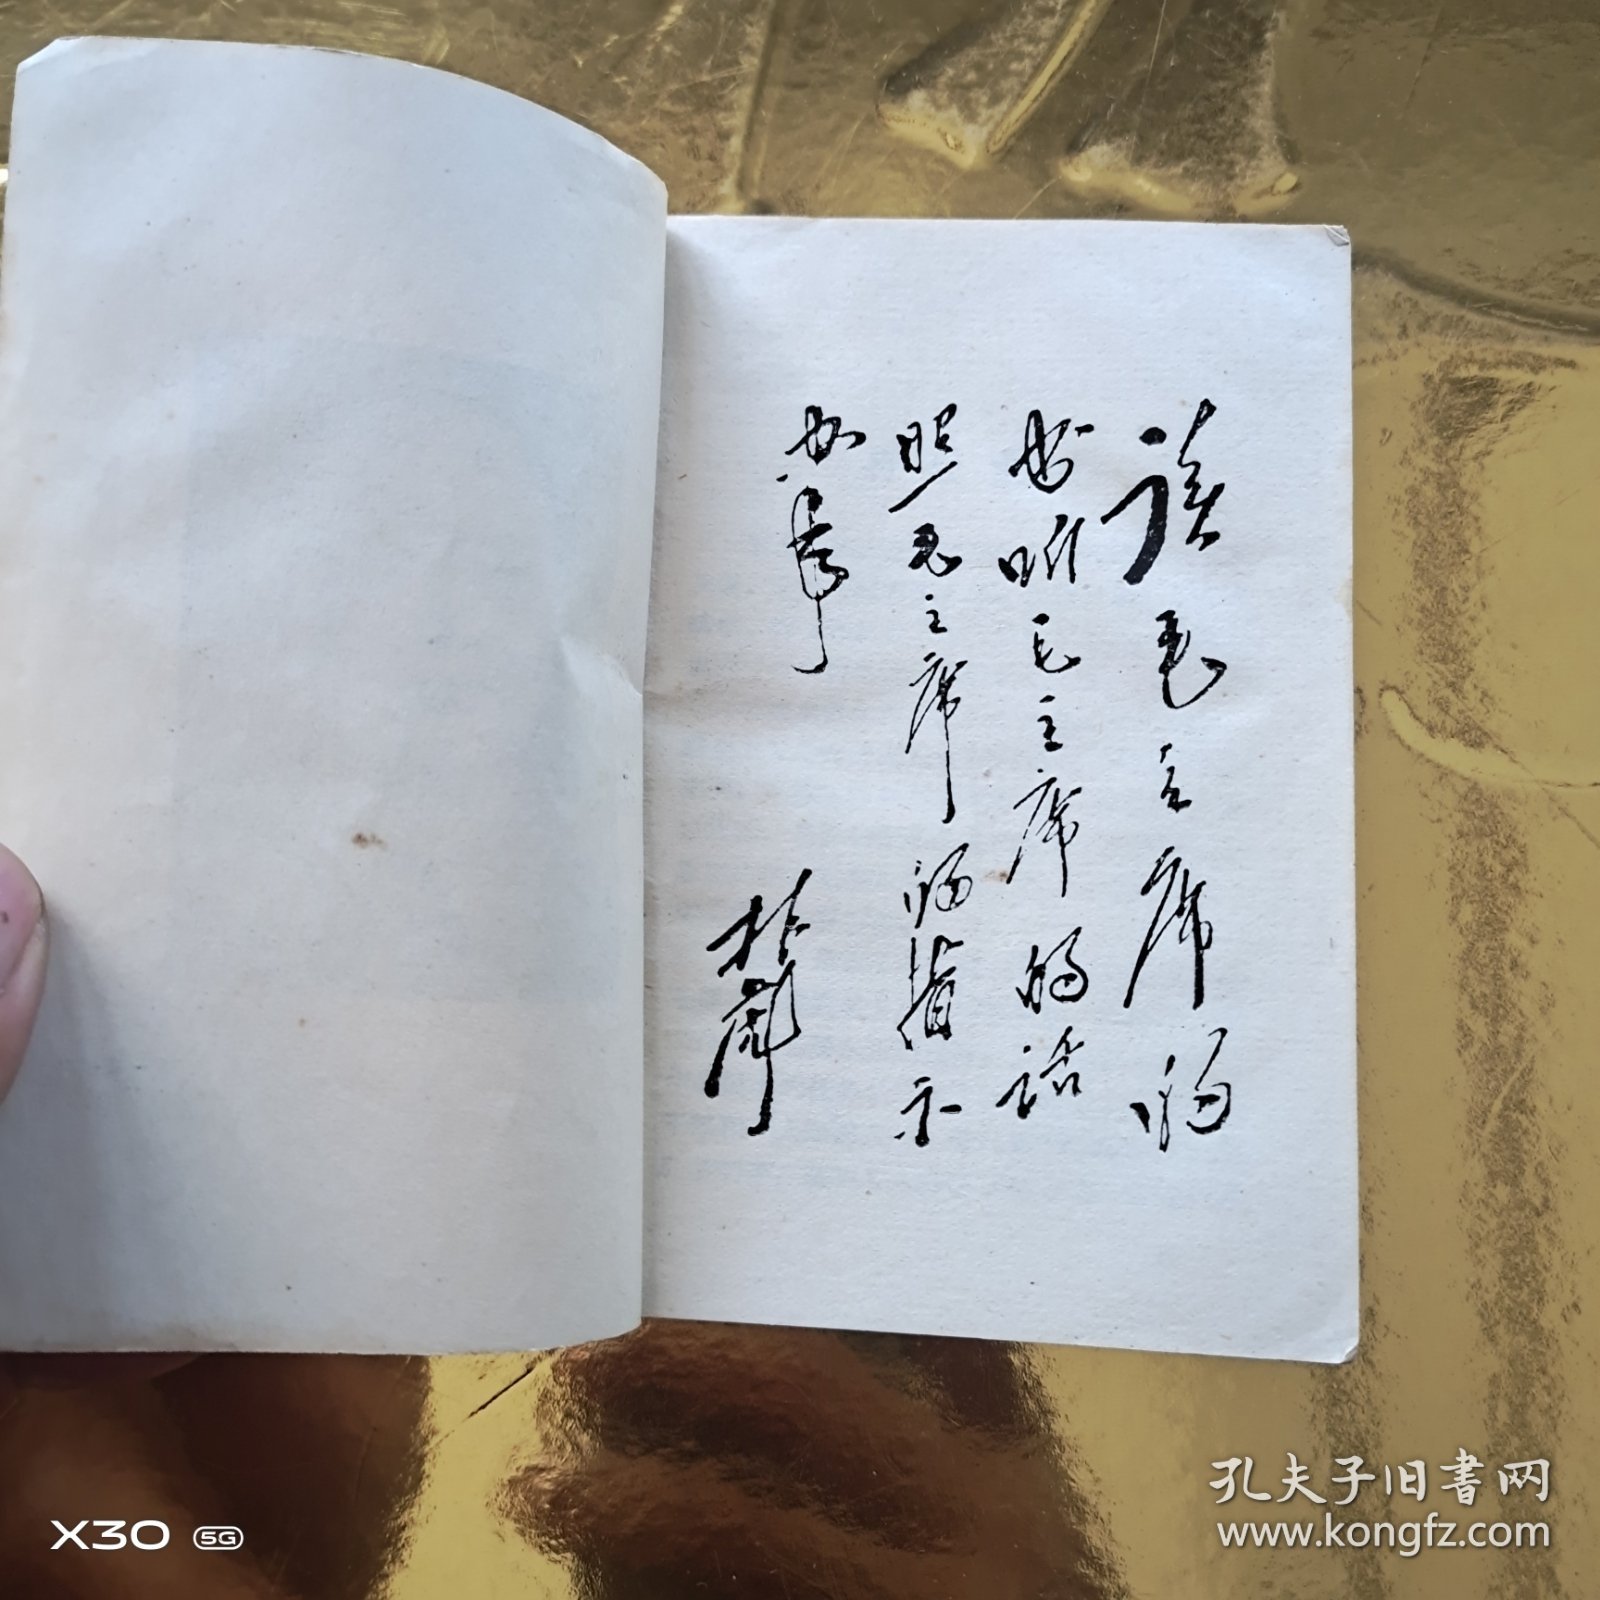 读毛主席的
书听毛主席的话
照毛主席的指示
办事
林彪
孔夫子旧書网
www.kongfz.com
X30 5G